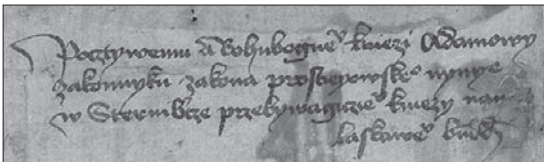 Pocztywemu a Bohubogne kniezi Adamowy
zakonnyku zakona prostiegowske nynye
w Sternbcze przebywagicze kniezy nam
laskawe bud